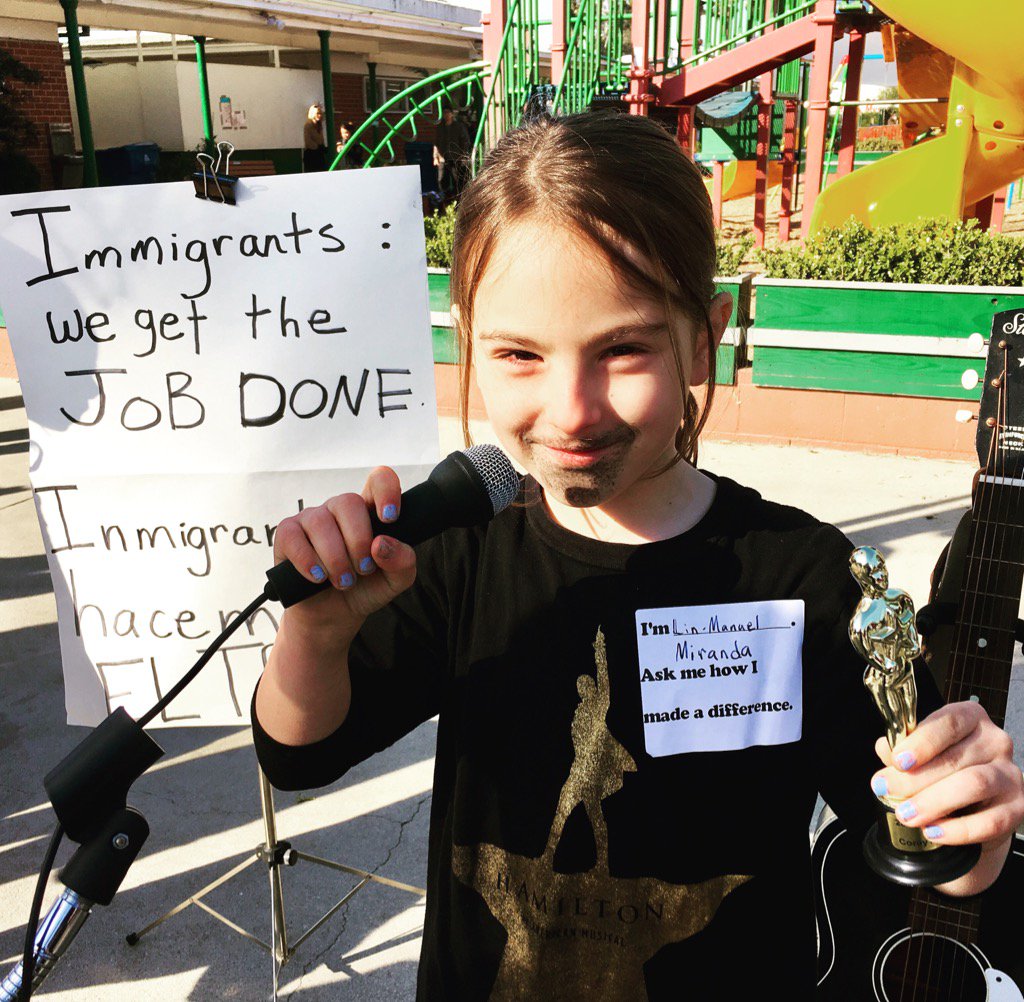 Immigrants :
we get the
JOB DONE.
Inmigran
hacem
EL T
I'm Lin-Manuel .
Miranda
Ask me how I
made a difference.
HAMILTON
AMERICAN MUSICAL